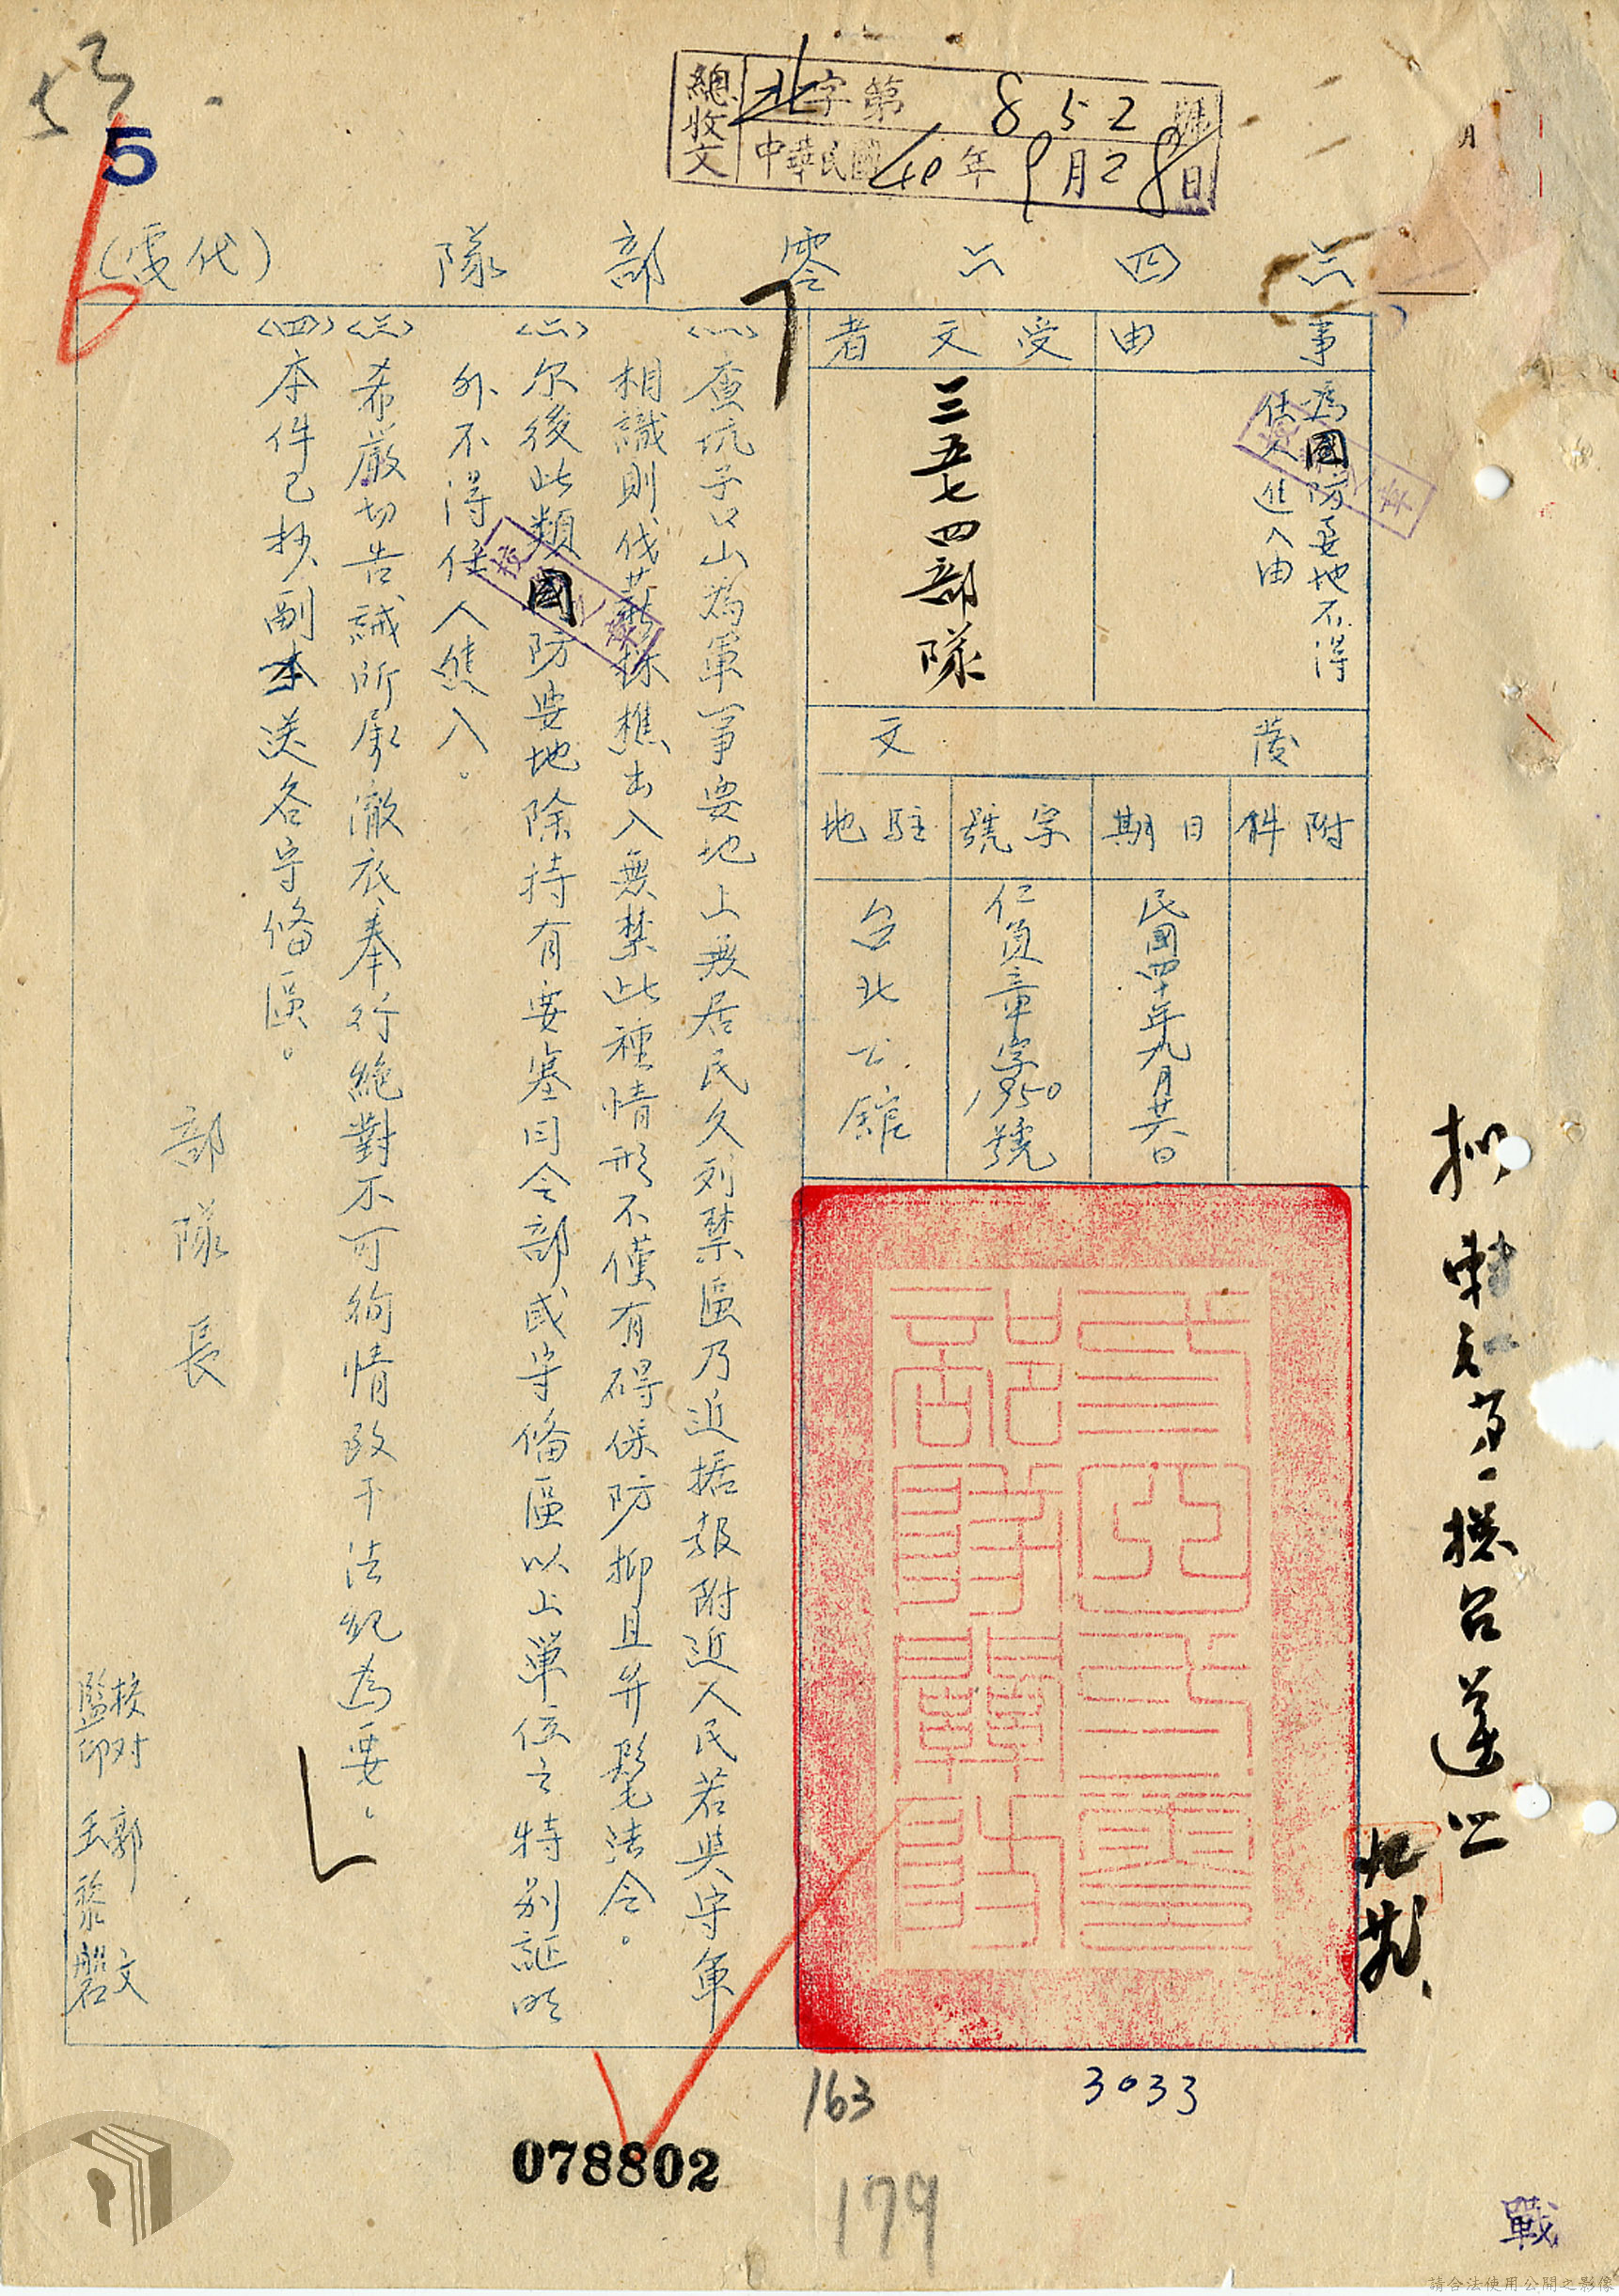 總收文 北字第852號
中華民國40年9月28日
5
六四六零部隊(代電)
事由
為國防要地不得
任人進入由
受文者
三五七四部隊
發文
附件
日期
民國四十年九月廿六日
字號
仁員章字1850號
駐地
台北公館
〈一〉查坑子口山為軍事要地上無居民久列禁區乃近据報附近人民若與守軍
相識則伐薪採樵出入無禁此種情形不僅有碍保防抑且弁髦法令。
〈二〉尔後此類國防要地除持有要塞司令部或守備區以上單位之特別証明
外不得任人進入。
〈三〉希嚴切告誡所屬澈底奉行絕對不可徇情致干法紀為要。
〈四〉本件已抄副本送各守備區。
部隊長
校對 郭文
監印 王黎磐
163
3033
078802
179
戰
請合法使用公開之影像